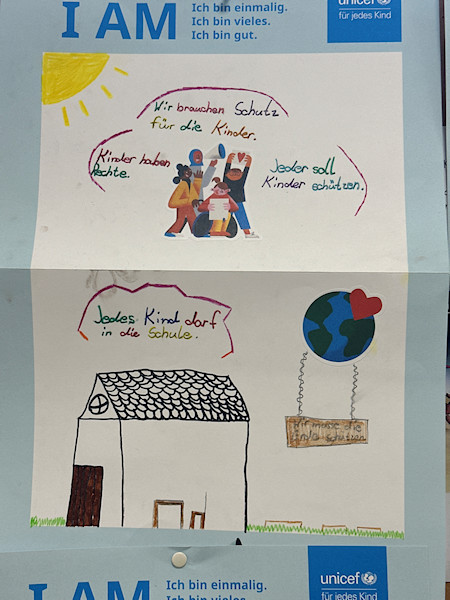 I AM
Ich bin einmalig.
Ich bin vieles.
Ich bin gut.
unicef
für jedes Kind
Wir brauchen Schutz
für die Kinder.
Kinder haben
Rechte.
Jeder soll
Kinder schützen.
Jedes Kind darf
in die Schule.
Wir müsse die
Kinder schützen
I AM
Ich bin einmalig.
Ich bin vieles.
unicef
für jedes Kind